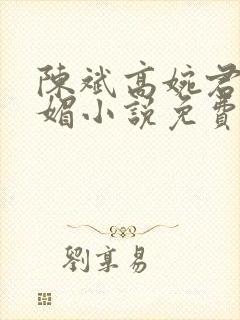 陳斌高婉君
媚小說免費
劉享易